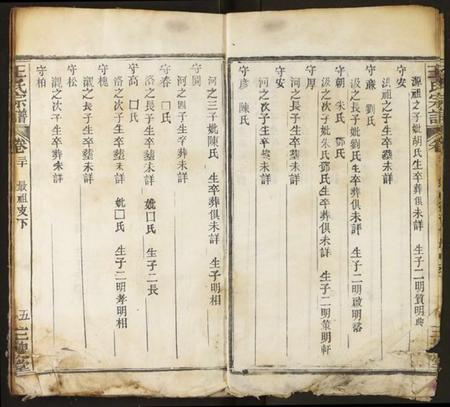 源祖之子妣胡氏生卒葬俱未詳 生子二明質明
守安
洪之子生卒塟未詳
守廉 劉氏
汲之長子妣劉氏生卒葬俱未詳 生子二明啟明
守朝 朱氏 鄧氏
汲之次子妣朱氏鄧氏生卒葬俱未詳 生子二明策明軒
守厚
河之長子生卒塟未詳
守安
河之次子生卒葬未詳
守彥 陳氏
河之三子妣陳氏 生卒葬俱未詳 生子明相
守國
河之四子生卒葬未詳
守春 囗氏
洛之長子生卒塟未詳 妣囗氏 生子二長
守高 囗氏
洛之次子生卒塟未詳 妣囗氏 生子二明孝明相
守槐
瀧之子生卒塟未詳
守松
瀧之次子生卒葬未詳
守柏
王氏宗譜
卷二十
最祖支下
五
三槐堂